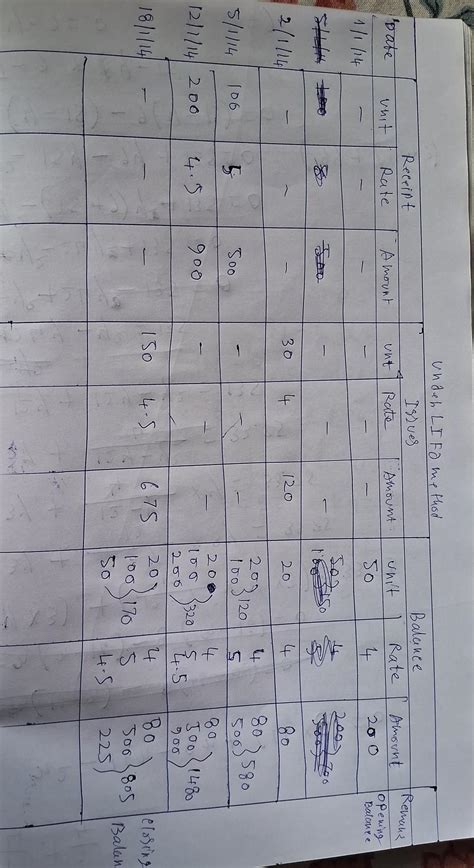 Under LIFO method
Date Receipt Issues Balance Remark
Unit Rate Amount Unit Rate Amount Unit Rate Amount
1/1/14 - - - - - - 50 4 200 opening Balance
2/1/14 - - - 30 4 120 20 4 80
5/1/14 100 5 500 - - - 20 4 80
100 } 120 5 500 } 580
12/1/14 200 4.5 900 - - - 20 4 80
100 5 500
200 } 320 4.5 900 } 1480
18/1/14 - - - 150 4.5 675 20 4 80 closing
100 5 500 Balan
50 } 170 4.5 225 } 805